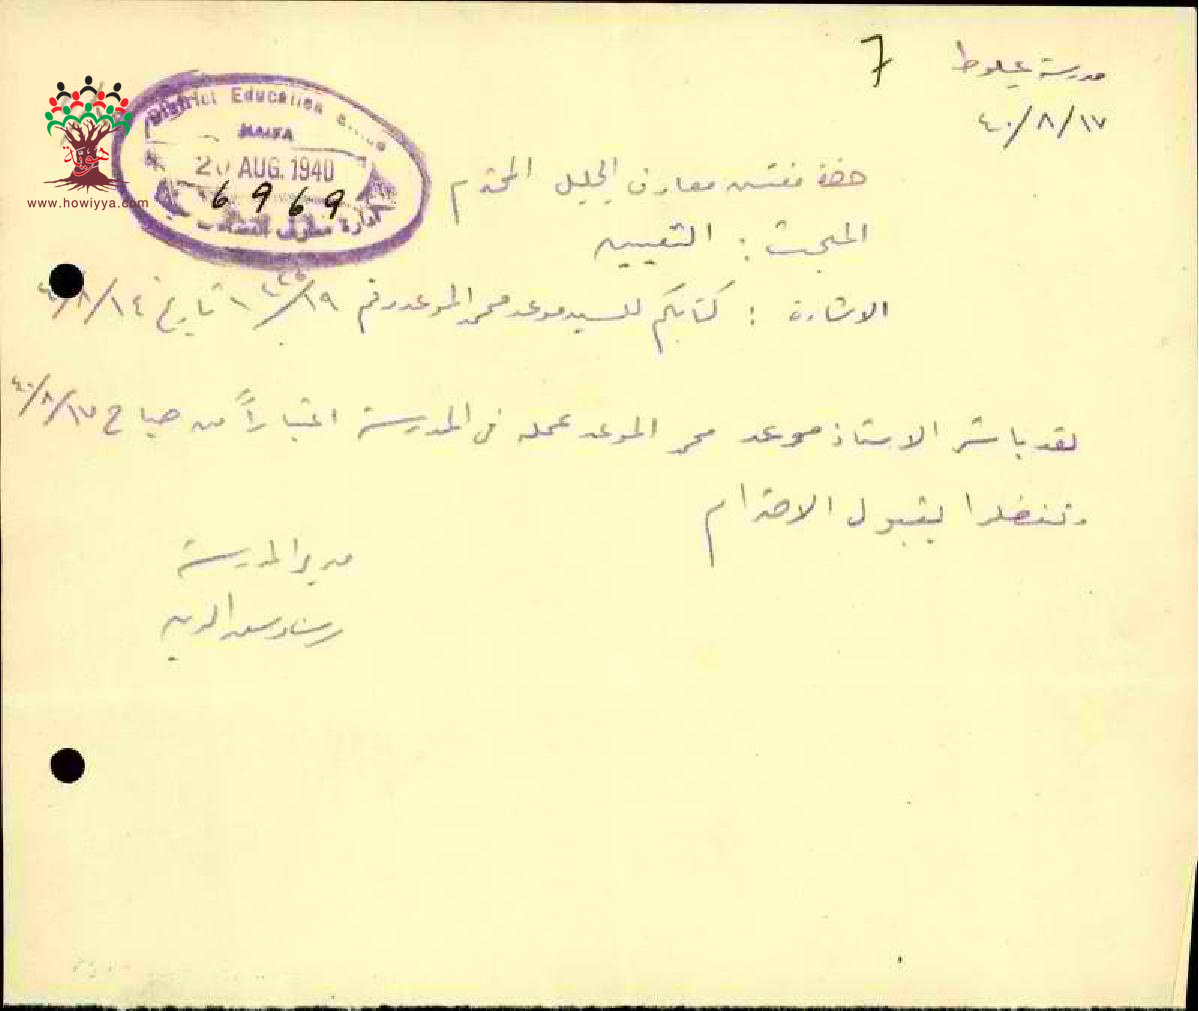 مدرسة عيلوط
7
٤٠/٨/١٧
District Education
HAIFA
20 AUG. 1940
6969
ادارة معارف
هوية
www.howiyya.com
حضرة مفتش معارف الجليل المحترم
المبحث : التعيين
الاشارة : كتابكم للسيد موعد محمد الموعد رقم تاريخ ٤٠/٨/١٤
لقد باشر الاستاذ موعد محمد الموعد عمله في المدرسة اعتباراً من صباح ٤٠/٨/١٧
وتفضلوا بقبول الاحترام
مدير المدرسة
رشاد سعد الدين